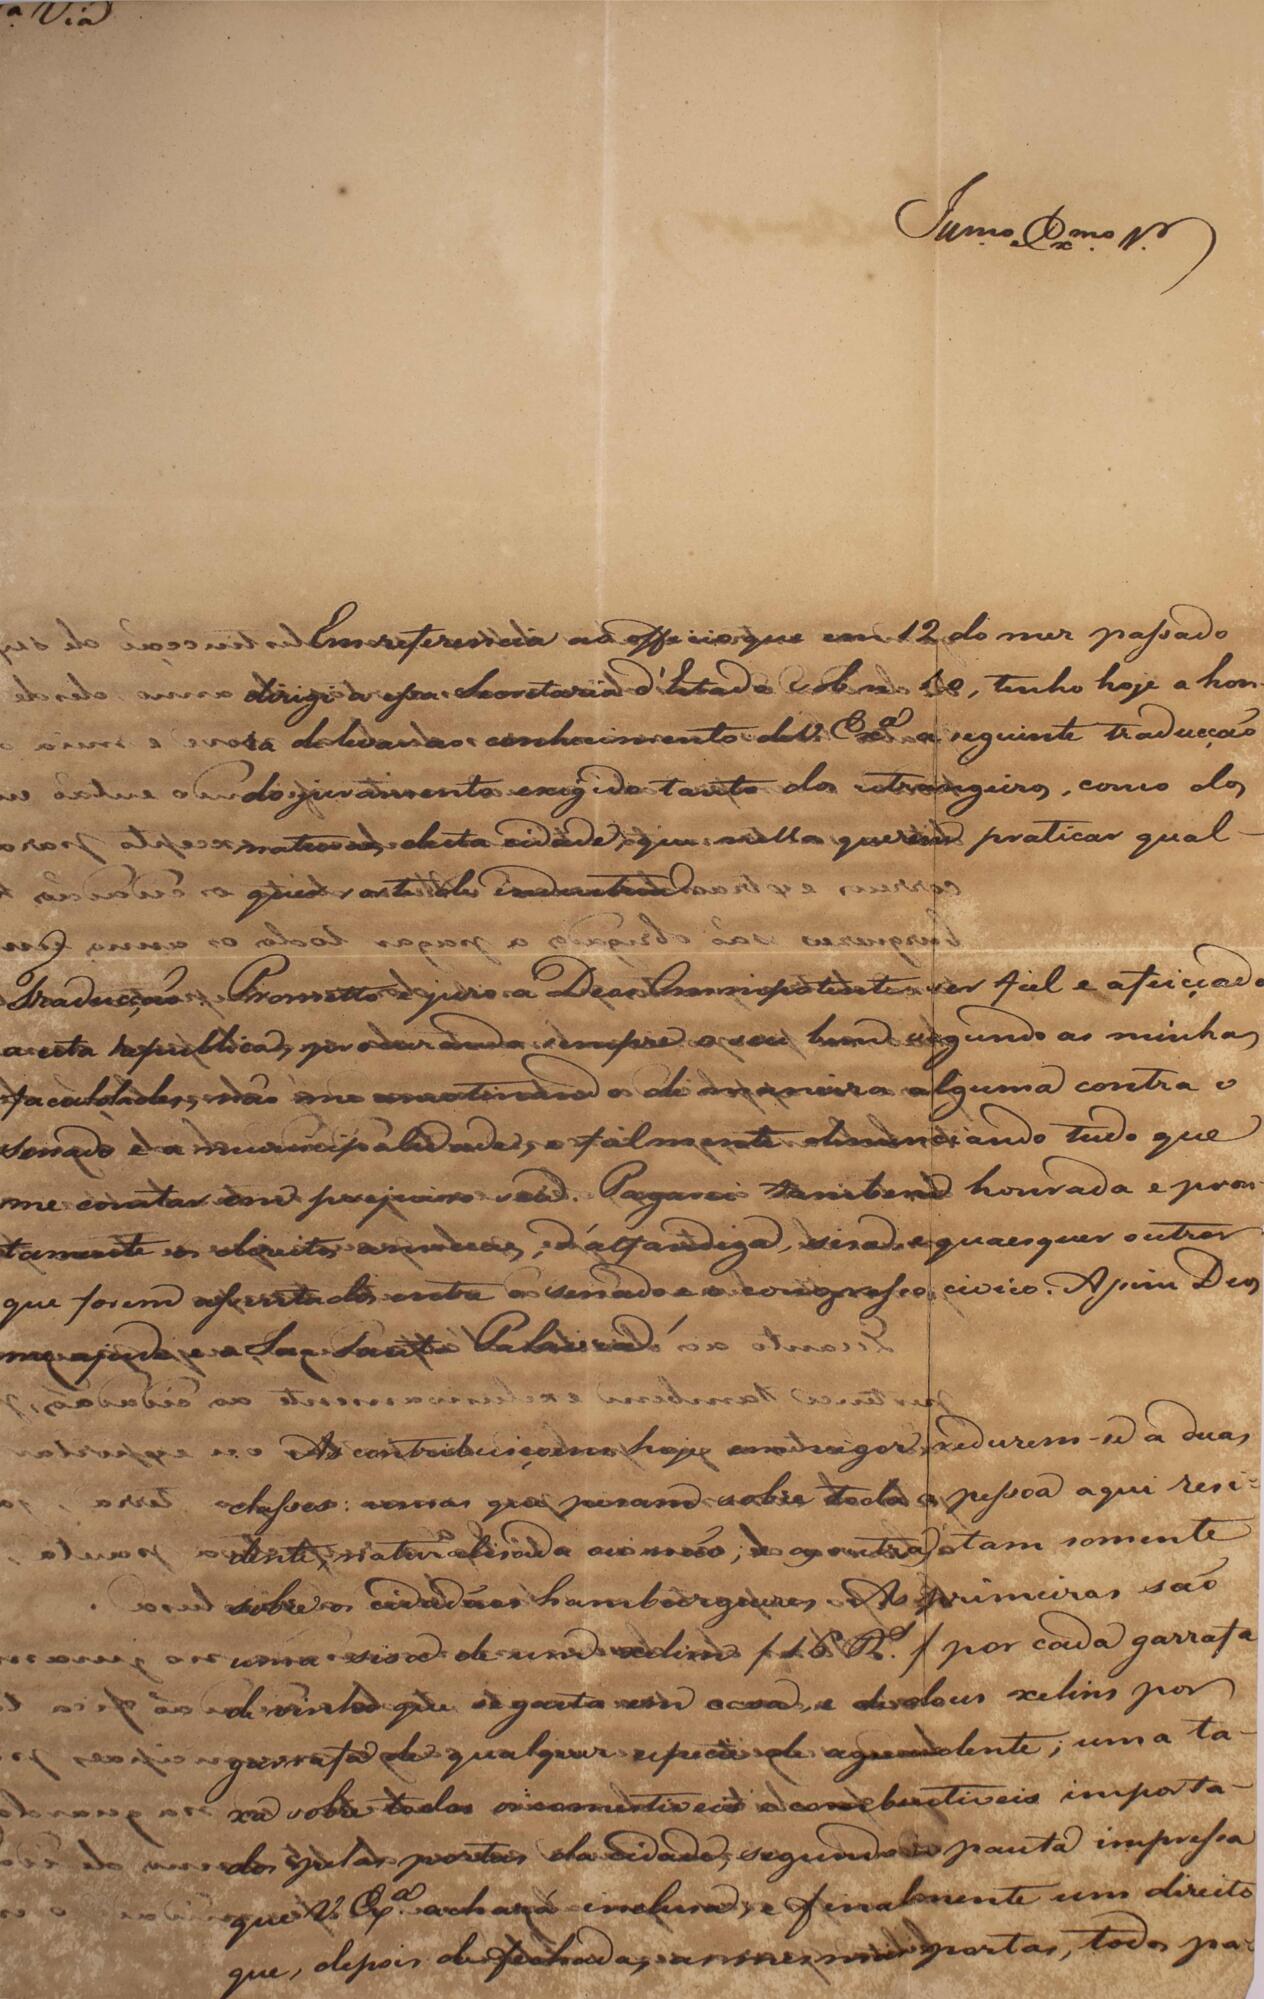 a Via
Illmo. e Exmo. Sr.
Em referencia ao officio que em 12 do mez passado
dirigi a essa Secretaria d'Estado sob n. 10, tenho hoje a hon-
ra de levar ao conhecimento de V. Exª. a seguinte traducção
do juramento exigido tanto dos estrangeiros, como dos
naturaes desta cidade, que nella querem praticar qual-
quer arte de industria
Traducção. Prometto e juro a Deos Omnipotente ser fiel e afeiçoado
a esta republica, procurando sempre o seu bem segundo as minhas
faculdades, não me amotinando de maneira alguma contra o
senado e a municipalidade, e fielmente denunciando tudo que
me constar em prejuizo seu. Pagarei tambem honrada e prom-
tamente os direitos annuaes, d'alfandega, sisa, e quaesquer outros
que forem assentados entre o senado e o congresso civico. Assim Deos
me ajude e a Sua Santa Palavra
As contribuiçoens hoje em vigor, redurem-se a duas
classes: umas que pesam sobre toda a pessoa aqui resi-
dente, naturalisada ou não; e as outras tam somente
sobre os cidadãos hamburguezes. As primeiras são
uma sisa de um xelim /16 Rs./ por cada garrafa
de vinho que se gasta em casa, e de dous xelins por
garrafa de qualquer especie de aguardente; uma ta-
xa sobre todos os comestiveis e combustiveis importa-
dos pelas portas da cidade, segundo a pauta impressa
que V. Exª. achará inclusa, e finalmente um direito
que, depois de fechadas as mesmas portas, todos pa-